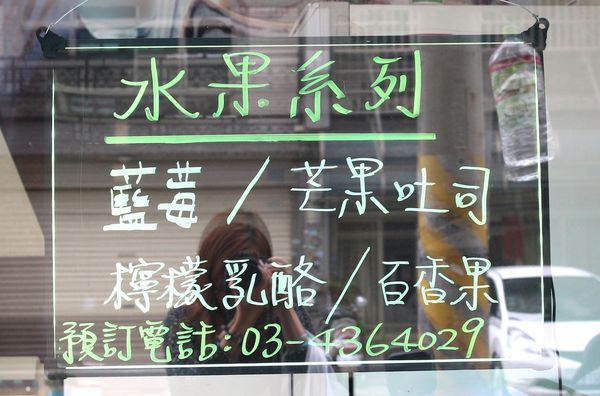 水果系列
藍莓/芒果吐司
檸檬乳酪/百香果
預訂電話:03-4364029